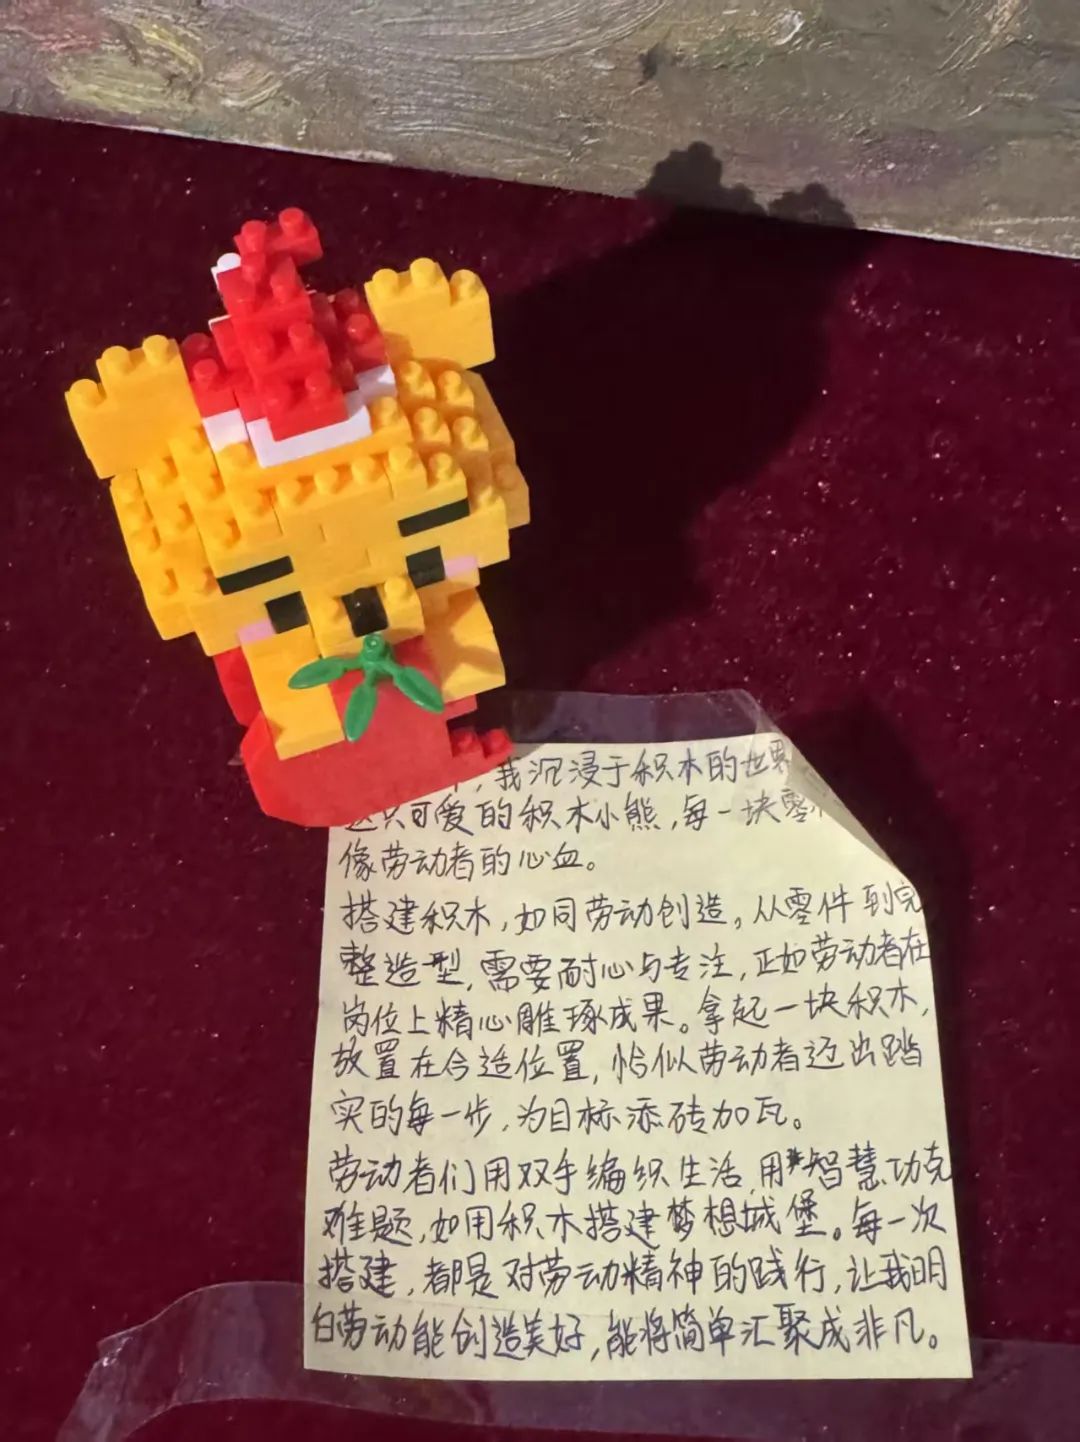 ，我沉浸于积木的世界
这只可爱的积木小熊，每一块零
像劳动者的心血。
搭建积木，如同劳动创造。从零件到完
整造型，需要耐心与专注，正如劳动者在
岗位上精心雕琢成果。拿起一块积木，
放置在合适位置，恰似劳动者迈出踏
实的每一步，为目标添砖加瓦。
劳动者们用双手编织生活，用智慧功克
难题，如用积木搭建梦想城堡。每一次
搭建，都是对劳动精神的践行，让我明
白劳动能创造美好，能将简单汇聚成非凡。